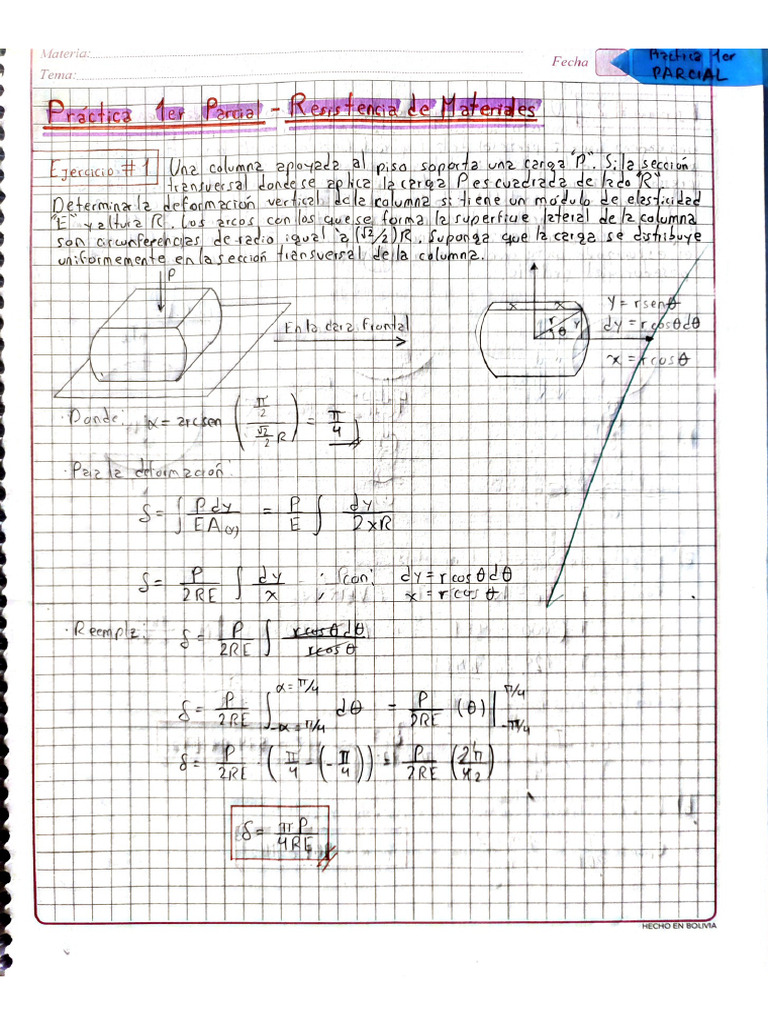 Materia:
Tema:
Fecha
Práctica 1er
PARCIAL
Práctica 1er Parcial - Resistencia de Materiales
Ejercicio #1 Una columna apoyada al piso soporta una carga "P". Si la sección
transversal donde se aplica la carga P es cuadrada de lado "R"
Determinar la deformación vertical de la columna si tiene un módulo de elasticidad
"E" y altura R. Los arcos con los que se forma la superficie lateral de la columna
son circunferencias de radio igual a (√2/2)R. Suponga que la carga se distribuye
uniformemente en la sección transversal de la columna.
P
En la cara frontal
x x
r
θ
Y
Y = rsenθ
dy = rcosθdθ
x = rcosθ
· Donde: α = arcsen ( (π/2) / (√2/2 R) ) = π/4
· Para la deformación:
δ = ∫ Pdy/EA(y) = P/E ∫ dy/2xR
δ = P/2RE ∫ dy/x ; con: dy = rcosθdθ
x = rcosθ
· Reemplz: δ = P/2RE ∫ rcosθdθ/rcosθ
δ = P/2RE ∫ α=π/4 -α=π/4 dθ = P/2RE (θ) | π/4 -π/4
δ = P/2RE · (π/4 - (-π/4)) = P/2RE (2π/4 2)
δ = πP/4RE
HECHO EN BOLIVIA